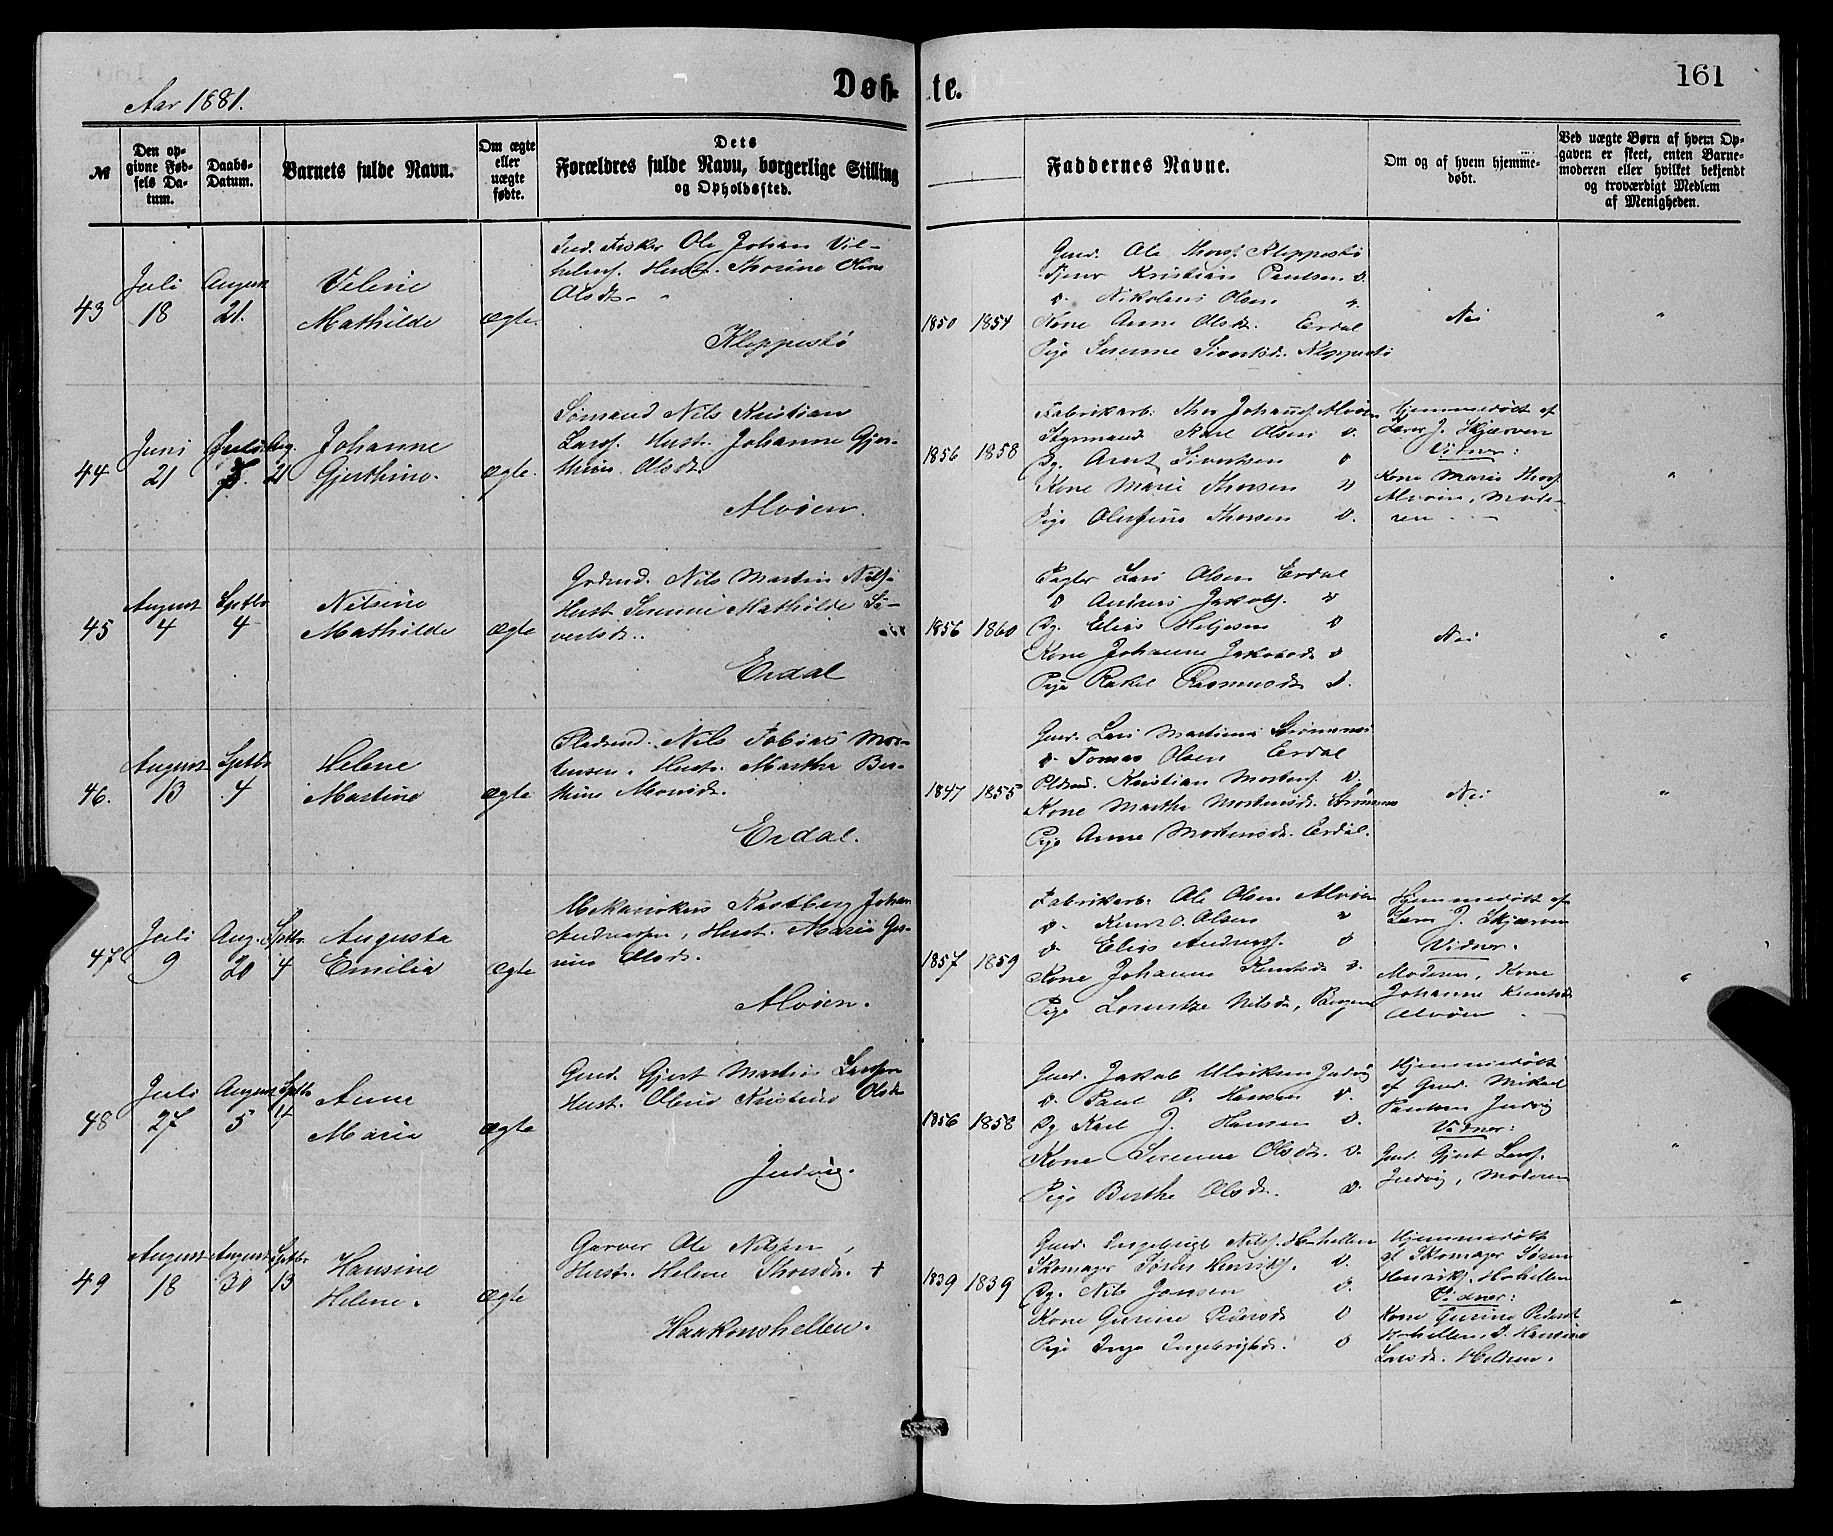 Aar 1881.
Døb-
te.
161
№
Den op-
givne Fød-
sels Da-
tum.
Daabs-
Datum.
Barnets fulde Navn.
Om ægte
eller
uægte
fødte.
Dets
Forældres fulde Navn, borgerlige Stilling
og Opholdssted.
Faddernes Navne.
Om og af hvem hjemme-
døbt.
Ved uægte Børn af hvem Op-
gaven er skeet, enten Barne-
moderen eller hvilket bekjendt
og troværdigt Medlem
af Menigheden.
43
Juli
18
August
21.
Mathilde
Ægte.
Ind. Fisker Ole Johan Vil-
helms. Hustr. Thorine Oline
Olsdt.
Kleppestø
1850
1854
Gmd. Ole Thors. Kleppestø
Tjener Kristian Paulsen D.
D. Nikoleus Olsen
Kone Anne Olsdr. Erdal
Pige Serenne Sivertsdr. Kleppestø
Nei
"
44
Juni
21
Juli
Aug.
21
Johanne
Gjerthine.
Ægte.
Sømand Nils Kristian
Larss. Hustr. Johanne Gjer-
thine Olsdt.
Alvøen.
1856
1858
Fabrikarb. Thor Johanss. Alvøen
Styrmand Karl Olsen D.
Ug. Arnt Sivertsen D
Kone Marie Thorsen "
Pige Olufine Thorsen D.
Hjemmedøbt af
Lærer J. Skjærven
Vidner:
Kone Marie Thors.
Alvøen, Mode-
ren
"
45
August
4
Septbr
4
Nilsine
Mathilde
Ægte
Nils Martin Nilss.
Hust. Serenne Mathilde Si-
vertsdt.
Erdal
1856
1860
Lars Olsen Erdal
D Andreas Jakobs. D
Ug. Elias Heljesen D
Kone Johanne Jakobsdr D
Pige Rakel Rasmusdr D.
Nei
"
46.
August
13
Septbr
4
Helene
Martine
Ægte
Pladsmd. Nils Tobias Mor-
tensen, Hustr. Martha Ber-
thine Monsdt.
Erdal.
1847
1855
Gmd. Lars Martinus Strømsnes
D. Tomas Olsen Erdal
Pldsmd. Kristian Mortens. D.
Kone Martha Mortensdr. Strømsnes
Pige Anne Mortensdr. Erdal.
Nei
"
47
Juli
9
Aug.
20
Septbr.
4
Augusta
Emilia
Ægte
Mekanikus Kastberg Johan
Andreasen, Hust. Marie Gu-
rine Olsdt.
Alvøen.
1857
1859
Fabrikarb. Ole Olsen Alvøen
D. Knut O. Olsen D
D. Elias Andreass. D
Kone Johanne Knutsdr D.
Pige Lorentze Nilsdr, Bergen
Hjemmedøbt af
Lærer J. Skjærven
Vidner.
Moderen, Kone
Johanne Knutsdr
Alvøen
"
48
Juli
27
August
5
Septbr
4
Anne
Maria
Ægte
Gmd. Gjert Martin Larsen
Hust. Olina Kristine Olsdt
Indvig.
1856
1858
Gmd. Jakob Ulriksen Indvig
D. Paul O. Hansen D.
Ug Karl J. Hansen D.
Kone Serenne Olsdr. D.
Pige Berthe Olsdr. D.
Hjemmedøbt
af Gmd. Mikal
Paulsen Indvig
Vidner:
Gmd. Gjert Larss.
Indvig, Moderen
"
49
August
18
August
30
Septbr
13
Hansine
Helene.
Ægte
Garver Ole Nilsen,
Hustr. Helene Thorsdr. +
Haakonshellen.
1839
1839
Gmd. Engebrigt Nilss. Hhellen
Skomager Søren Henriks. D.
Ug. Nils Jansen D.
Kone Gurine Pedersdr D
Pige Inga Engebrigtsdr. D
Hjemmedøbt
af Skomager Søren
Henriks. Hhellen
Vidner:
Kone Gurine Pedersdt
Hhellen, P. Hansine
Larsdr. Hellen.
"